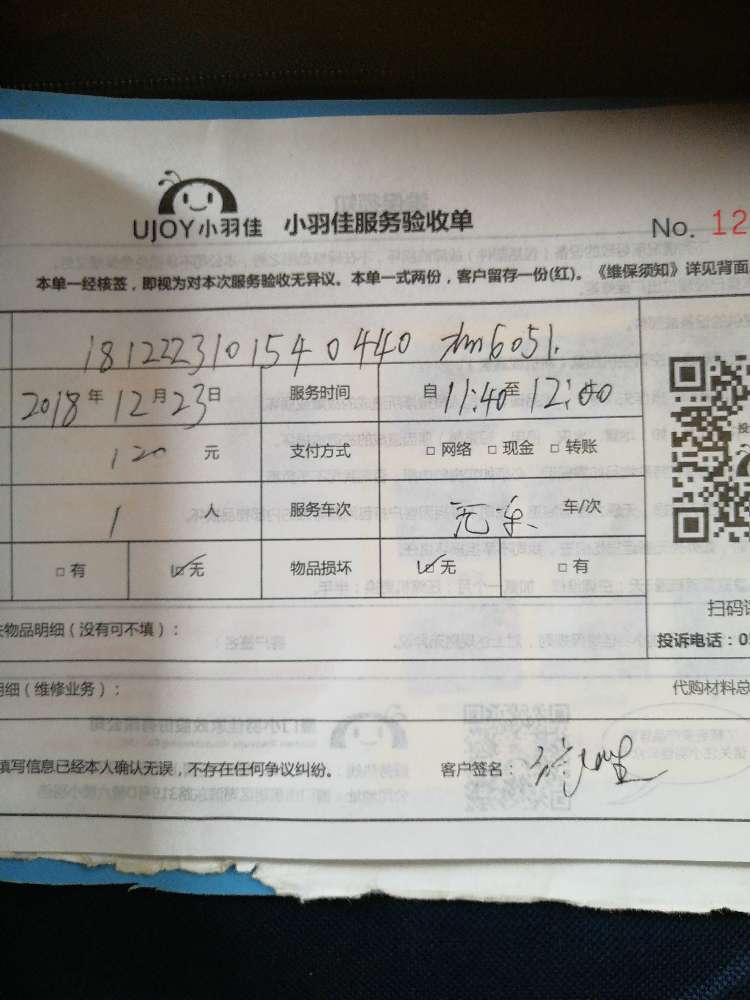 UJOY小羽佳 小羽佳服务验收单 No. 12
本单一经核签，即视为对本次服务验收无异议。本单一式两份，客户留存一份(红)。《维保须知》详见背面
181222310154 0440 xm6051.
2018年12月23日 服务时间 自11:40至12:00
120 元 支付方式 □ 网络 □ 现金 □ 转账
1 人 服务车次 车/次
□ 有 ☑ 无 物品损坏 ☑ 无 □ 有
物品明细（没有可不填）： 扫码
投诉电话：0
明细（维修业务）： 代购材料总
填写信息已经本人确认无误，不存在任何争议纠纷。 客户签名：